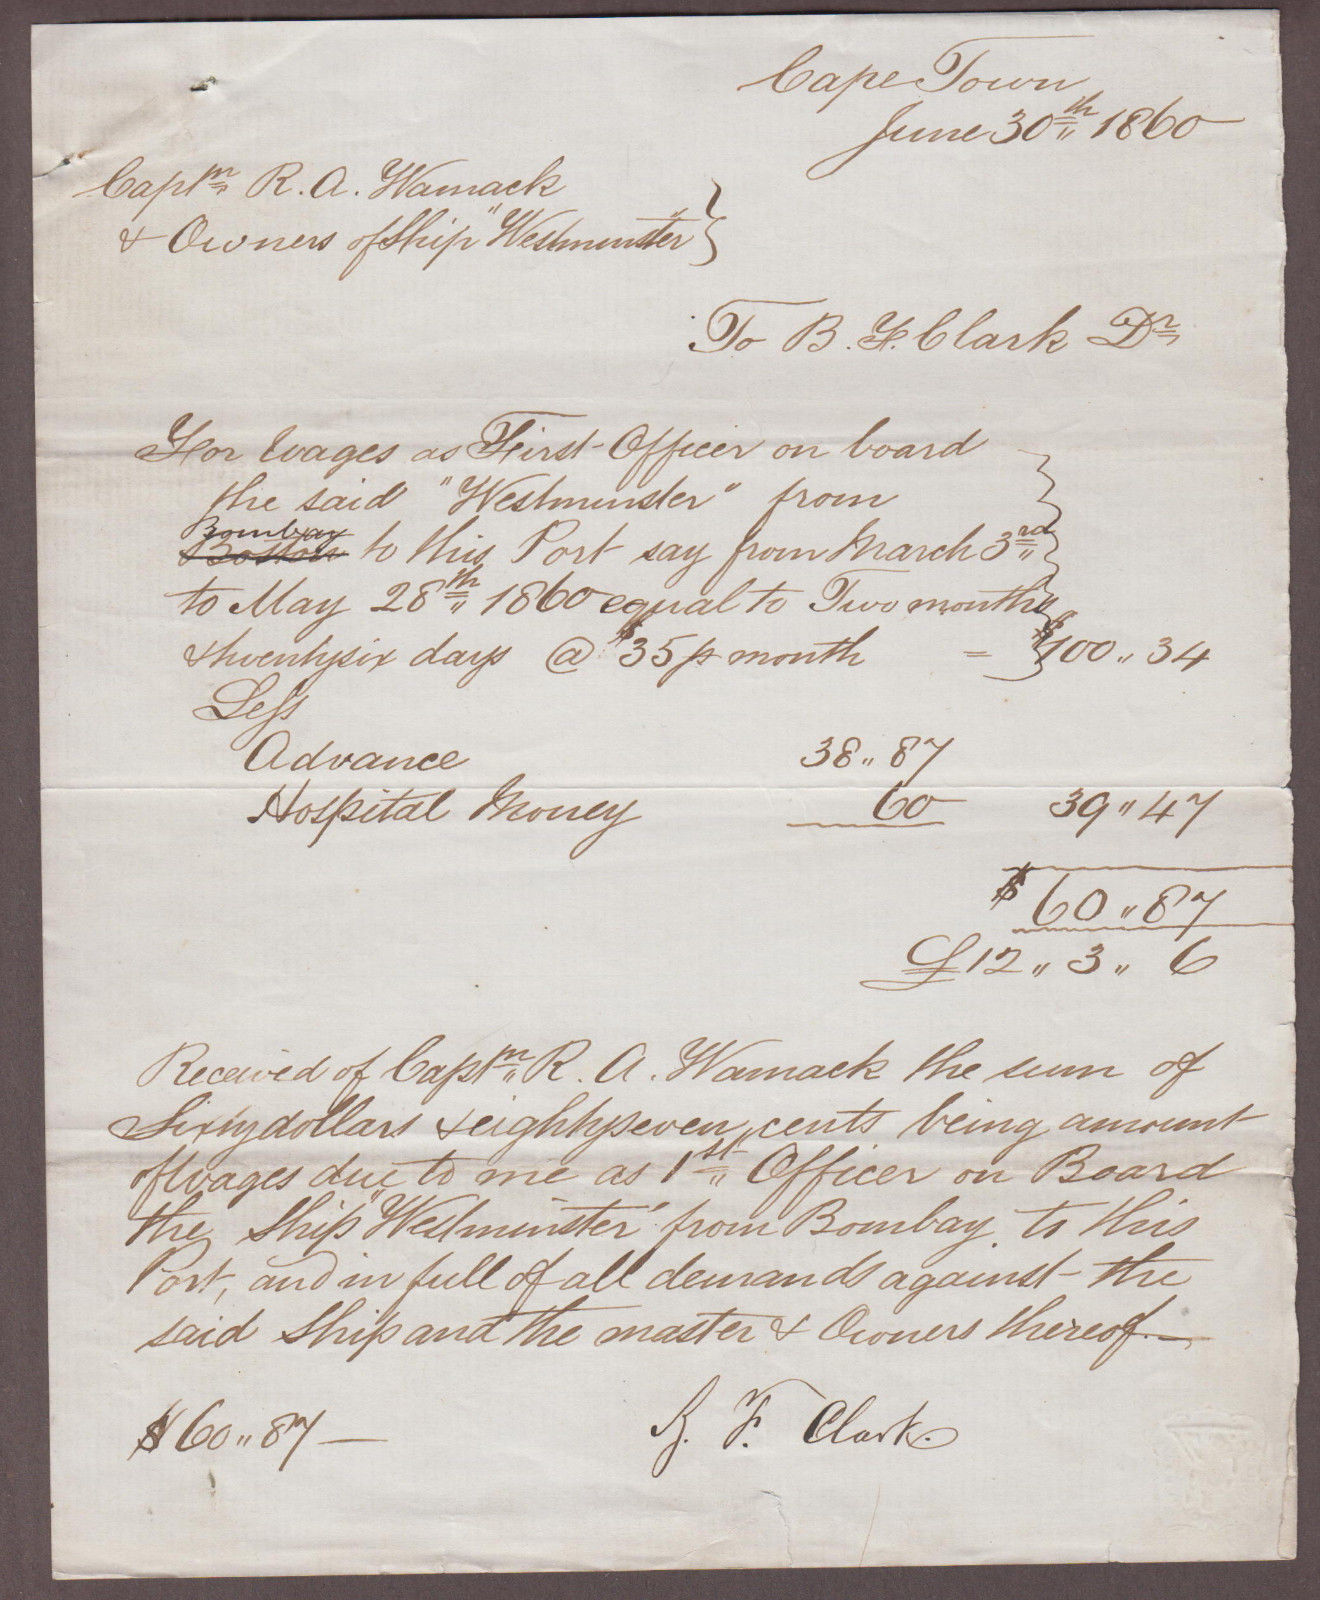 Cape Town
June 30th 1860
Captn R. A. Wamack
& Owners of Ship "Westminster"
To B. F. Clark Dr
For Wages as First Officer on board
the said "Westminster" from
Bombay
Boston to this Port say from March 3rd
to May 28th 1860 equal to Two months
& twentysix days @ $35 p month = $100 " 34
Less
Advance 38 " 87
Hospital Money 60 39 " 47
$ 60 " 87
£12 " 3 " 6
Received of Captn R. A. Wamack the sum of
Sixty dollars & eightyseven cents being amount
of wages due to me as 1st Officer on Board
the Ship "Westminster" from Bombay to this
Port, and in full of all demands against the
said Ship and the master & Owners thereof.—
$60 " 87 — B. F. Clark.